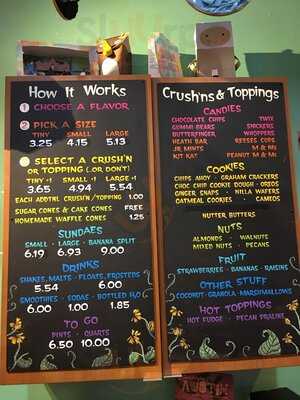 How It Works
1 CHOOSE A FLAVOR
2 PICK A SIZE
TINY SMALL LARGE
3.25 4.15 5.13
3 SELECT A CRUSH'N
OR TOPPING (OR DON'T)
TINY +1 SMALL +1 LARGE +1
3.65 4.94 5.54
EACH ADDTNL CRUSH'N/TOPPING 1.00
SUGAR CONES & CAKE CONES FREE
HOMEMADE WAFFLE CONES 1.25
SUNDAES
SMALL - LARGE - BANANA SPLIT
6.19 6.93 9.00
DRINKS
SHAKES, MALTS - FLOATS, FROSTEDS
5.54 6.00
SMOOTHIES - SODAS - BOTTLED H2O
6.00 1.00 1.85
TO GO
PINTS - QUARTS
6.50 10.00
Crush'ns & Toppings
CANDIES
CHOCOLATE CHIPS TWIX
GUMMI BEARS SNICKERS
BUTTERFINGER WHOPPERS
HEATH BAR REESES CUPS
JR. MINTS M & Ms
KIT KAT PEANUT M & Ms
COOKIES
CHIPS AHOY - GRAHAM CRACKERS
CHOC CHIP COOKIE DOUGH - OREOS
GINGER SNAPS - NILLA WAFERS
OATMEAL COOKIES - CAMEOS
NUTTER BUTTERS
NUTS
ALMONDS - WALNUTS
MIXED NUTS - PECANS
FRUIT
STRAWBERRIES - BANANAS - RAISINS
OTHER STUFF
COCONUT - GRANOLA - MARSHMALLOWS
HOT TOPPINGS
HOT FUDGE - PECAN PRALINE
AUSTIN